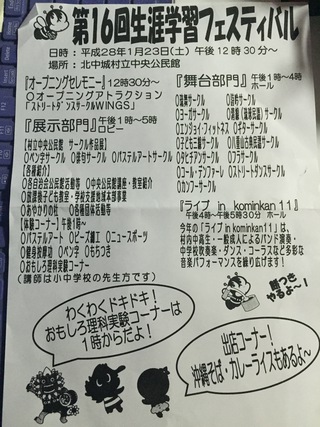 第16回生涯学習フェスティバル
日時：平成28年1月23日(土)午後12時30分～
場所：北中城村立中央公民館
『オープニングセレモニー』12時30分～
○オープニングアトラクション
「ストリートダンスサークルWINGS」
『展示部門』午後1時～5時
ロビー
【村立中央公民館 サークル作品展】
○ペン字サークル ○パステルアートサークル
【各種紹介】
○各自治会公民館活動等 ○中央公民館講座・教室紹介
○放課後子ども教室・学校支援地域本部事業
○あやかりの杜 ○各種団体活動等
【体験コーナー】午後1時～
○パステルアート ○ビーズ細工 ○ニュースポーツ
○健身按摩功 ○ペン字 ○もちつき
○おもしろ理科実験コーナー
(講師は小中学校の先生方です)
『舞台部門』午後1時～4時
ホール
○琉舞サークル
○ヨーガサークル
○エンジョイ・フィットネス ○ギターサークル
○子ども三線サークル ○八重山古典民謡サークル
○タヒチアンサークル ○フラサークル
○コール・テンファーレ ○ストリートダンスサークル
○カンフーサークル
『ライブ in kominkan 11』
午後4時～午後5時30分 ホール
今年の「ライブ in kominkan11」は、
村内中高生・一般成人によるバンド演奏・
中学校吹奏楽・ダンス・コーラスなど多彩な
音楽パフォーマンスを繰り広げます！
餅つき
やるよ～！
わくわくドキドキ！
おもしろ理科実験コーナーは
1時からだよ！
出店コーナー！
沖縄そば・カレーライスもあるよ～